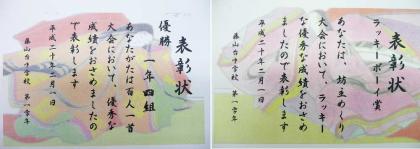 表彰状
優勝
一年四組
あなたがたは百人一首
大会において、優秀な
成績をおさめましたの
で表彰します
平成二十年二月一日
藤山台中学校 第一学年
表彰状
ラッキーボーイ賞
あなたは、坊主めくり
大会において、ラッキー
な優秀な成績をおさめ
ましたので表彰します
平成二十年二月一日
藤山台中学校 第一学年